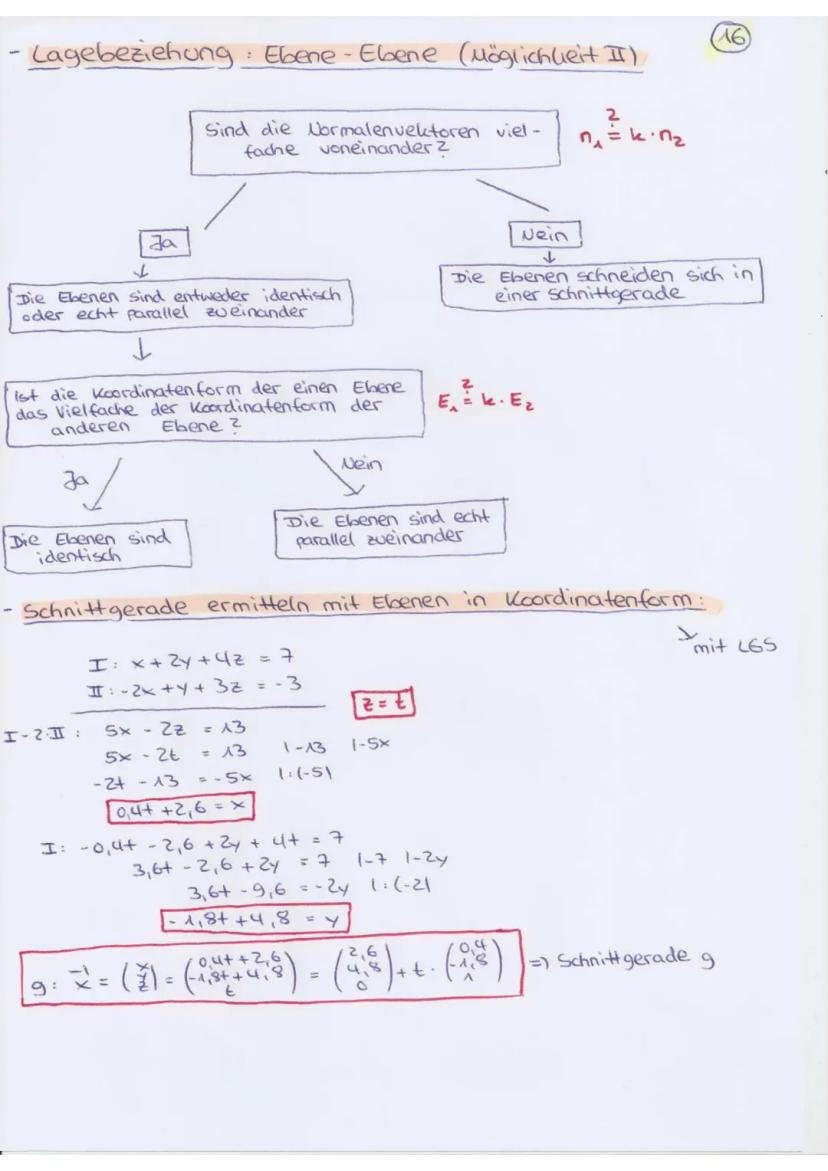 16
- Lagebeziehung : Ebene - Ebene (Möglichkeit II)
Sind die Normalenvektoren viel-
fache voneinander?
n₁ ≟ k · n₂
Ja
Nein
Die Ebenen sind entweder identisch
oder echt parallel zueinander
Die Ebenen schneiden sich in
einer Schnittgerade
Ist die Koordinatenform der einen Ebene
das Vielfache der Koordinatenform der
anderen Ebene?
E₁ ≟ k · E₂
Ja
Nein
Die Ebenen sind
identisch
Die Ebenen sind echt
parallel zueinander
- Schnittgerade ermitteln mit Ebenen in Koordinatenform:
↳ mit LGS
I: x + 2y + 4z = 7
II: -2x + y + 3z = -3
z = t
I - 2·II : 5x - 2z = 13
5x - 2t = 13 |-13 |-5x
-2t - 13 = -5x |:(-5)
0,4t + 2,6 = x
I: -0,4t - 2,6 + 2y + 4t = 7
3,6t - 2,6 + 2y = 7 |-7 |-2y
3,6t - 9,6 = -2y |:(-2)
-1,8t + 4,8 = y
g: x⃗ = (x y z) = (0,4t + 2,6 -1,8t + 4,8 t) = (2,6 4,8 0) + t · (0,4 -1,8 1) => Schnittgerade g